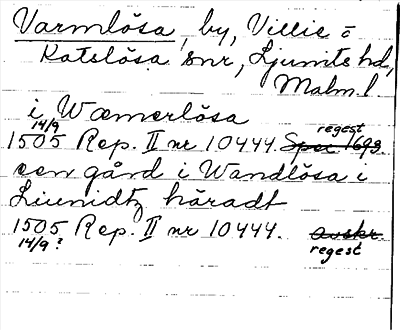 Varmlösa, by, Villie o
Katslösa snr, Ljunits hd,
Malm. l.
i Wæmerlösa
14/9 regest
1505 Rep. II nr 10444. Spec 1693.
een gård i Wandlösa i
Liunidtz häradt
1505 Rep. II nr 10444. avskr.
14/9? regest